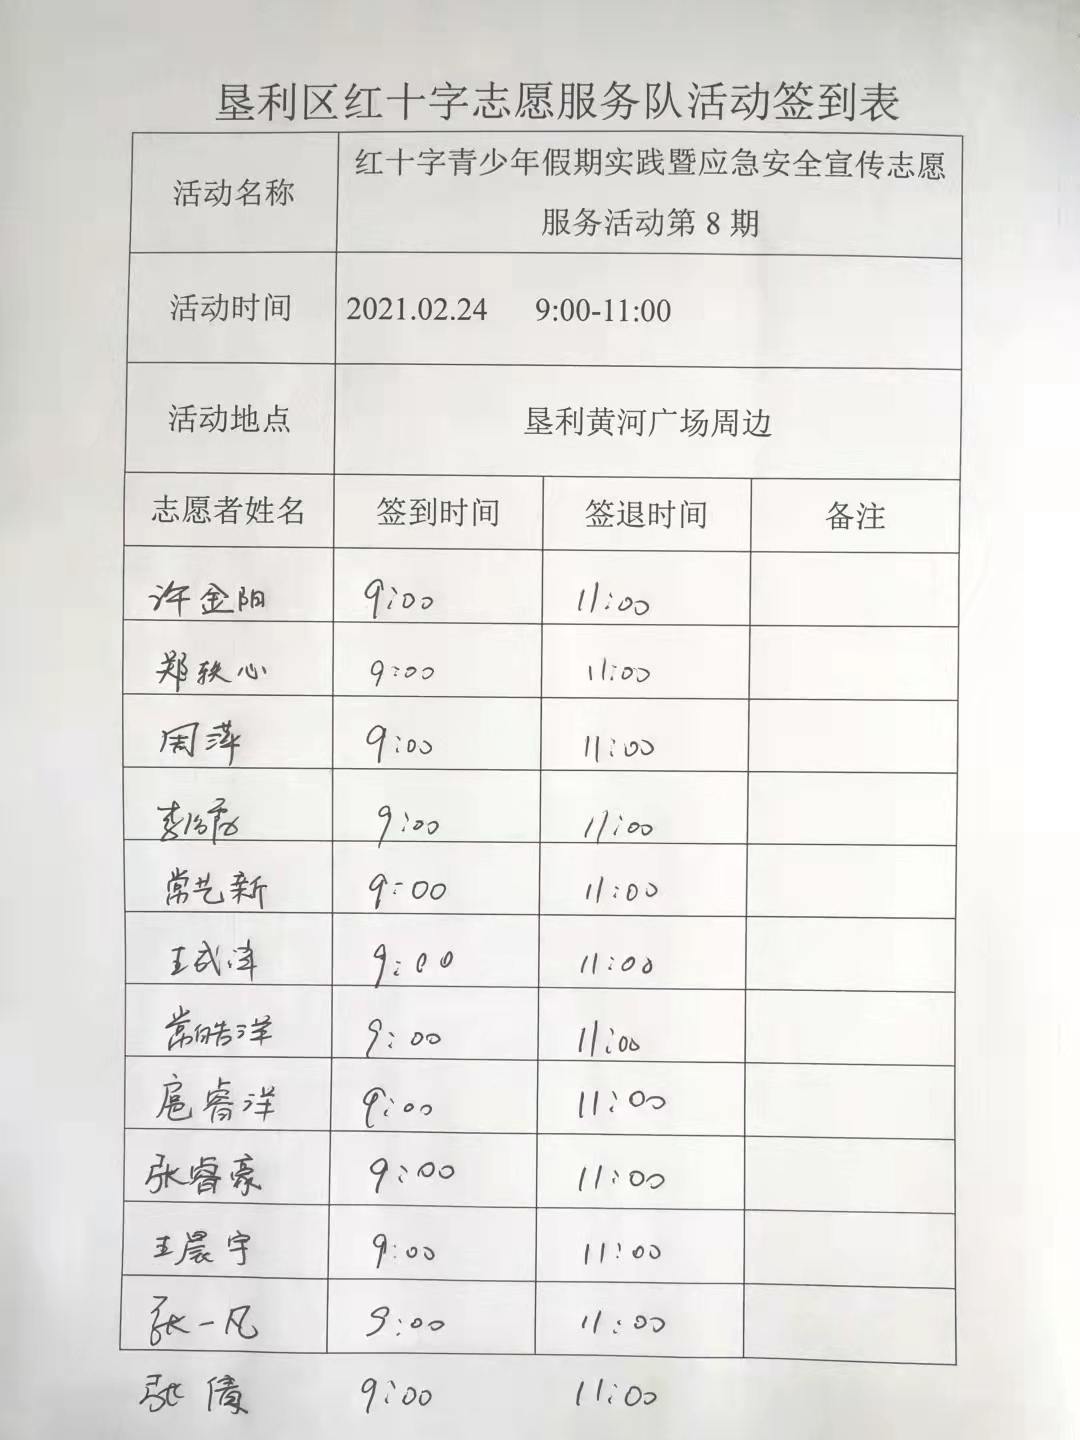 垦利区红十字志愿服务队活动签到表
活动名称
红十字青少年假期实践暨应急安全宣传志愿
服务活动第 8 期
活动时间 2021.02.24 9:00-11:00
活动地点 垦利黄河广场周边
志愿者姓名 签到时间 签退时间 备注
许金阳 9:00 11:00
郑轶心 9:00 11:00
周萍 9:00 11:00
李 9:00 11:00
常艺新 9:00 11:00
王武洋 9:00 11:00
常皓洋 9:00 11:00
扈睿洋 9:00 11:00
张睿豪 9:00 11:00
王晨宇 9:00 11:00
张一凡 9:00 11:00
张倩 9:00 11:00